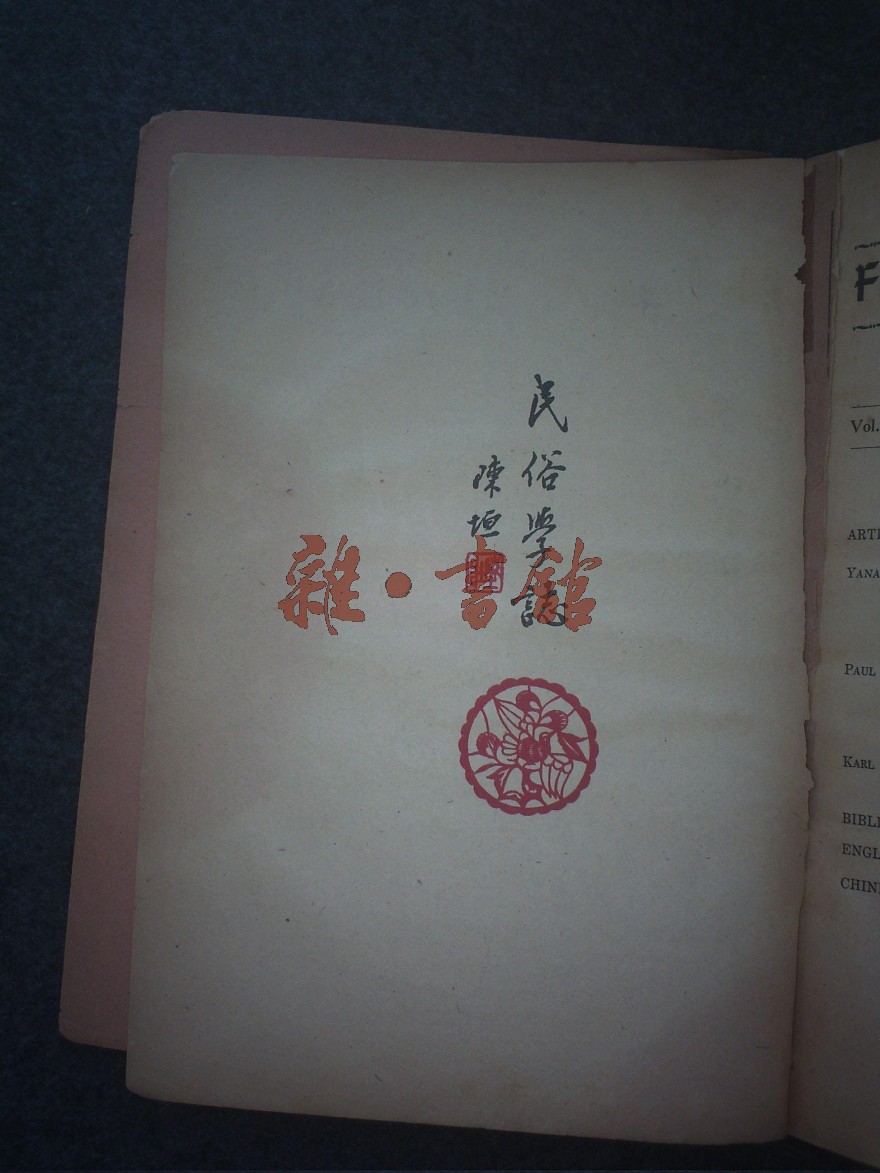 民俗學誌
陳垣
雜·書館
F
Vol.
ARTI
YANA
PAUL
KARL
BIBLI
ENGL
CHIN